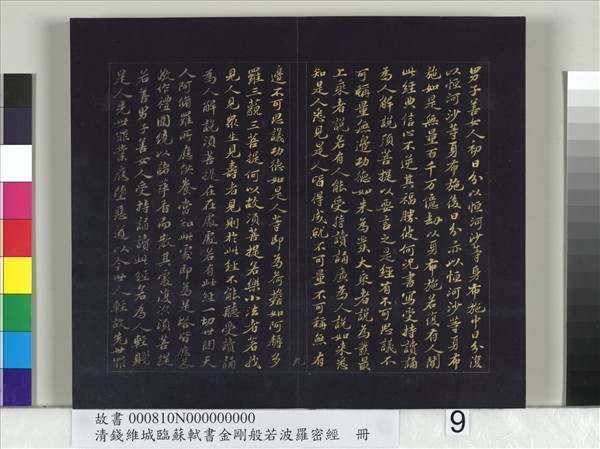 男子善女人初日分以恒河沙等身布施中日分復
以恒河沙等身布施後日分亦以恒河沙等身布
施如是無量百千万億劫以身布施若復有人聞
此經典信心不逆其福勝彼何況書寫受持讀誦
為人解說須菩提以要言之是經有不可思議不
可稱量無邊功德如来為發大乘者說為發最
上乘者說若有人能受持讀誦廣為人說如来悉
知是人悉見是人皆得成就不可量不可稱無有
九
邊不可思議功德如是人等即為荷擔如阿耨多
羅三藐三菩提何以故須菩提若樂小法者著我
見人見衆生見壽者見則於此經不能聽受讀誦
為人解說須菩提在在處處若有此經一切世間天
人阿脩羅所應供養當知此處即為是塔皆應恭
敬作禮圍繞以諸華香而散其處復次須菩提
若善男子善女人受持讀誦此經若為人輕賤
是人先世罪業應墮惡道以今世人輕故先世罪
故書 000810N000000000
清錢維城臨蘇軾書金剛般若波羅密經 冊
9